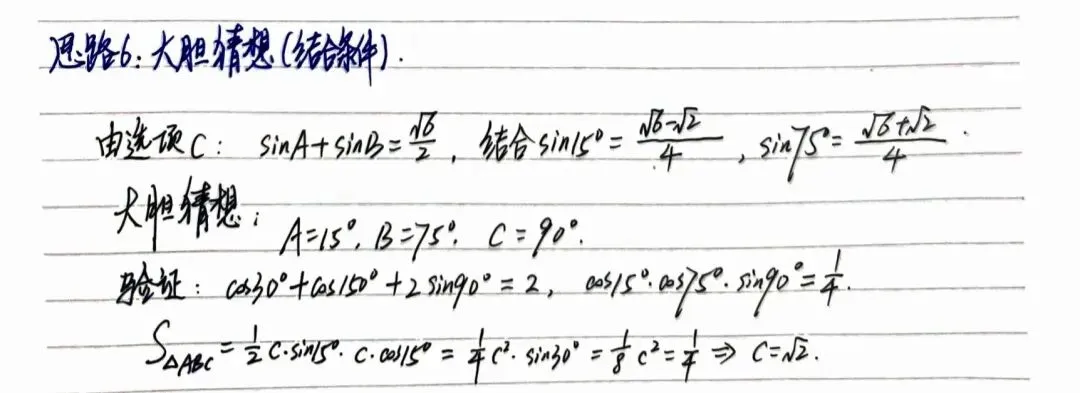 思路6：大胆猜想(结合条件).
由选项C： sinA+sinB=√6/2，结合sin15°=(√6-√2)/4，sin75°=(√6+√2)/4.
大胆猜想：
A=15°, B=75°. C=90°.
验证：cos30°+cos150°+2sin90°=2， cos15°·cos75°·sin90°=1/4.
S△ABC=1/2 c·sin15°·c·cos15°=1/4 c²·sin30°=1/8 c²=1/4 ⇒ c=√2.